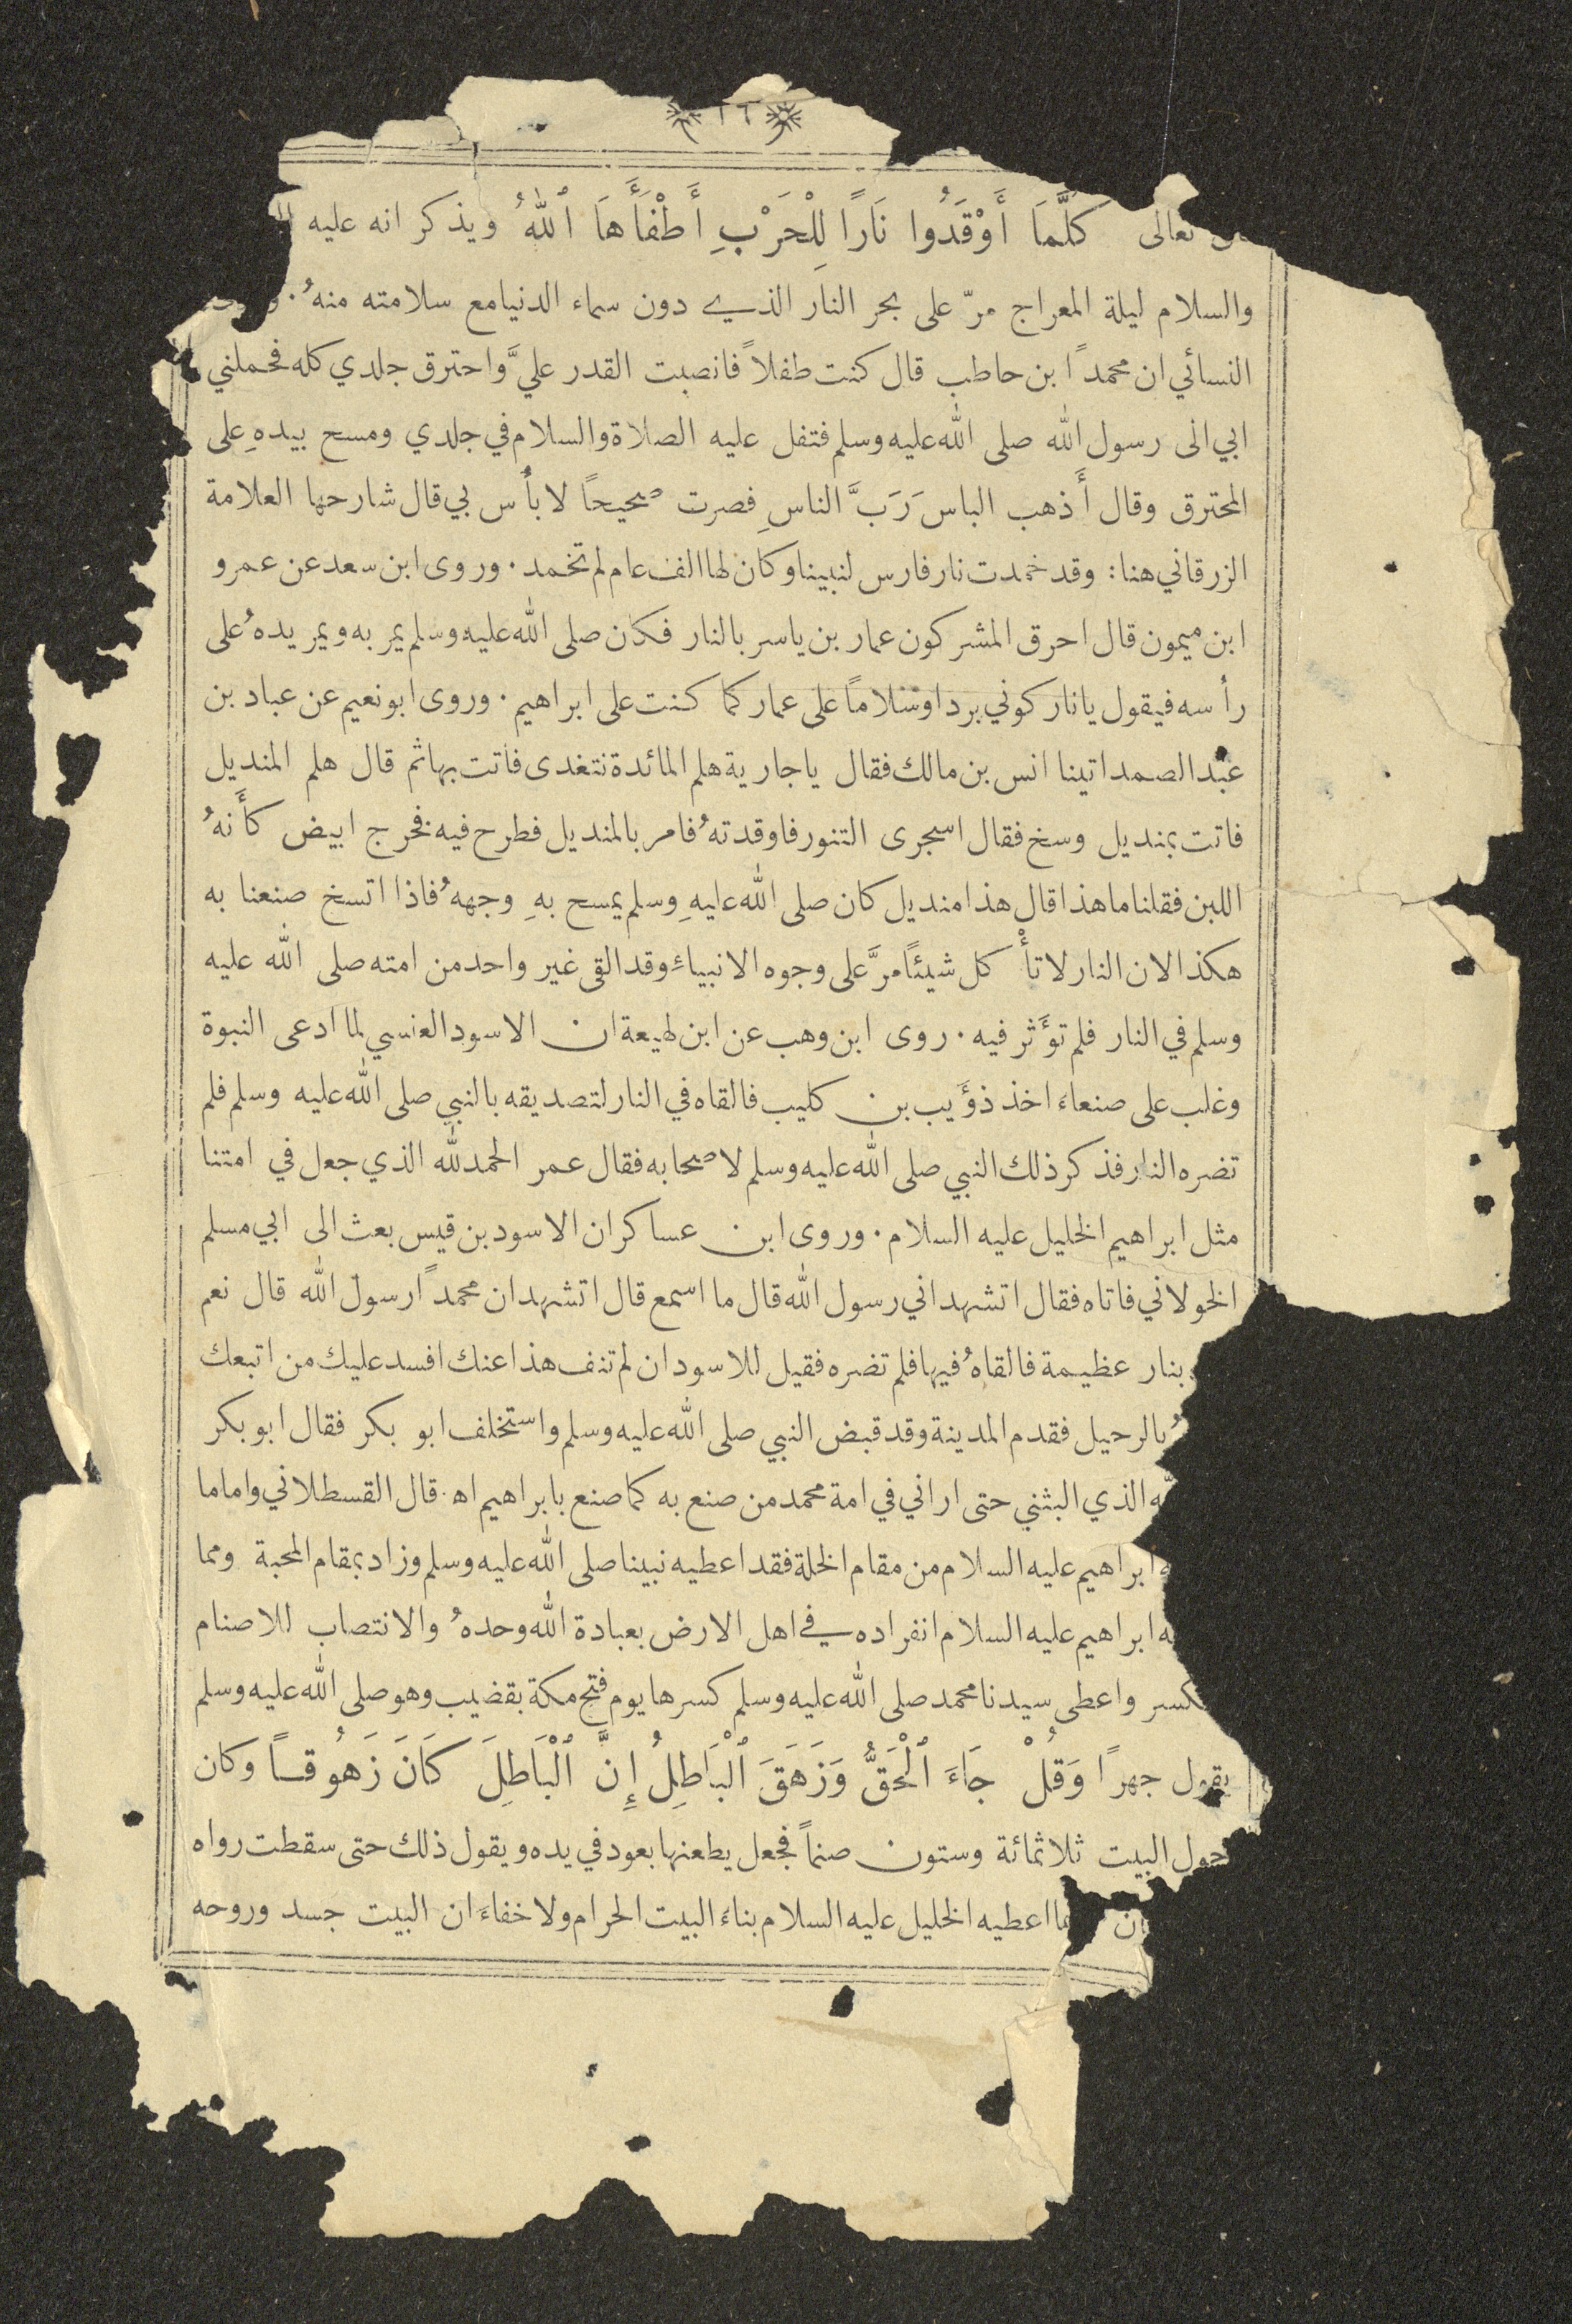 ١٦
تعالى كُلَّمَا أَوْقَدُوا نَارًا لِلْحَرْبِ أَطْفَأَهَا ٱللهُ ويذكر انه عليه
والسلام ليلة المعراج مرّ على بحر النار الذي دون سماء الدنيا مع سلامته منهُ ·
النسائي ان محمدًا بن حاطب قال كنت طفلاً فانصبت القدر عليَّ واحترق جلدي كله فحملني
ابي الى رسول الله صلى الله عليه وسلم فتفل عليه الصلاة والسلام في جلدي ومسح بيدهِ على
المحترق وقال أَذهب الباس رَبَّ الناسِ فصرت صحيحًا لا بأس بي قال شارحها العلامة
الزرقاني هنا : وقد خمدت نار فارس لنبينا وكان لها الف عام لم تخمد · وروى ابن سعد عن عمرو
ابن ميمون قال احرق المشركون عمار بن ياسر بالنار فكان صلى الله عليه وسلم يمر به ويمر يدهُ على
رأسه فيقول يا نار كوني بردا وسلامًا على عمار كما كنت على ابراهيم · وروى ابو نعيم عن عباد بن
عبد الصمد اتينا انس بن مالك فقال يا جارية هلم المائدة نتغدى فاتت بها ثم قال هلم المنديل
فاتت بمنديل وسخ فقال اسجرى التنور فاوقدتهُ فامر بالمنديل فطرح فيه فخرج ابيض كأَنهُ
اللبن فقلنا ما هذا قال هذا منديل كان صلى الله عليهِ وسلم يمسح بهِ وجههُ فاذا اتسخ صنعنا به
هكذا لان النار لا تأْكل شيئًا مرَّ على وجوه الانبياءِ وقد القى غير واحد من امته صلى الله عليه
وسلم في النار فلم تؤَثر فيه · روى ابن وهب عن ابن لهيعة ان الاسود العنسي لما ادعى النبوة
وغلب على صنعاءَ اخذ ذؤَيب بن كليب فالقاه في النار لتصديقه بالنبي صلى الله عليه وسلم فلم
تضره النار فذكر ذلك النبي صلى الله عليه وسلم لاصحابه فقال عمر الحمد لله الذي جعل في امتنا
مثل ابراهيم الخليل عليه السلام · وروى ابن عساكر ان الاسود بن قيس بعث الى ابي مسلم
الخولاني فاتاه فقال اتشهد اني رسول الله قال ما اسمع قال اتشهد ان محمدًا رسول الله قال نعم
بنار عظيمة فالقاهُ فيها فلم تضره فقيل للاسود ان لم تنف هذا عنك افسد عليك من اتبعك
بالرحيل فقدم المدينة وقد قبض النبي صلى الله عليه وسلم واستخلف ابو بكر فقال ابو بكر
الذي البثني حتى اراني في امة محمد من صنع به كما صنع بابراهيم اه · قال القسطلاني واما ما
ابراهيم عليه السلام من مقام الخلة فقد اعطيه نبينا صلى الله عليه وسلم وزاد بمقام المحبة ومما
ابراهيم عليه السلام انفراده في اهل الارض بعبادة الله وحدهُ والانتصاب للاصنام
واعطى سيدنا محمد صلى الله عليه وسلم كسرها يوم فتح مكة بقضيب وهو صلى الله عليه وسلم
يقول جهرًا وَقُلْ جَاءَ ٱلْحَقُّ وَزَهَقَ ٱلْبَاطِلُ إِنَّ ٱلْبَاطِلَ كَانَ زَهُوقًا وكان
حول البيت ثلاثمائة وستون صنمًا فجعل يطعنها بعود في يده ويقول ذلك حتى سقطت رواه
اعطيه الخليل عليه السلام بناءَ البيت الحرام ولا خفاءَ ان البيت جسد وروحه